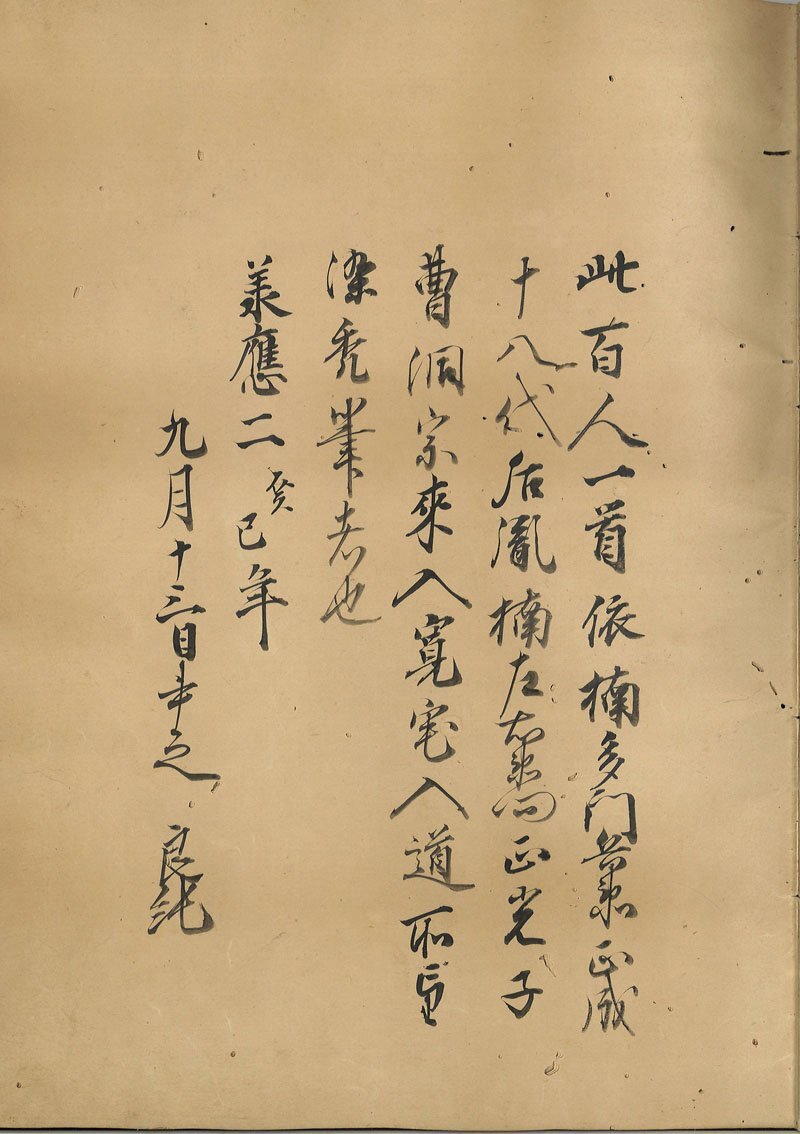 此百人一首依楠多門兵衛正成
十八代後胤楠左衛門正光子
曹洞宗來入寛宅入道所望
染禿筆者也
羕應二癸巳年
九月十三日 良純